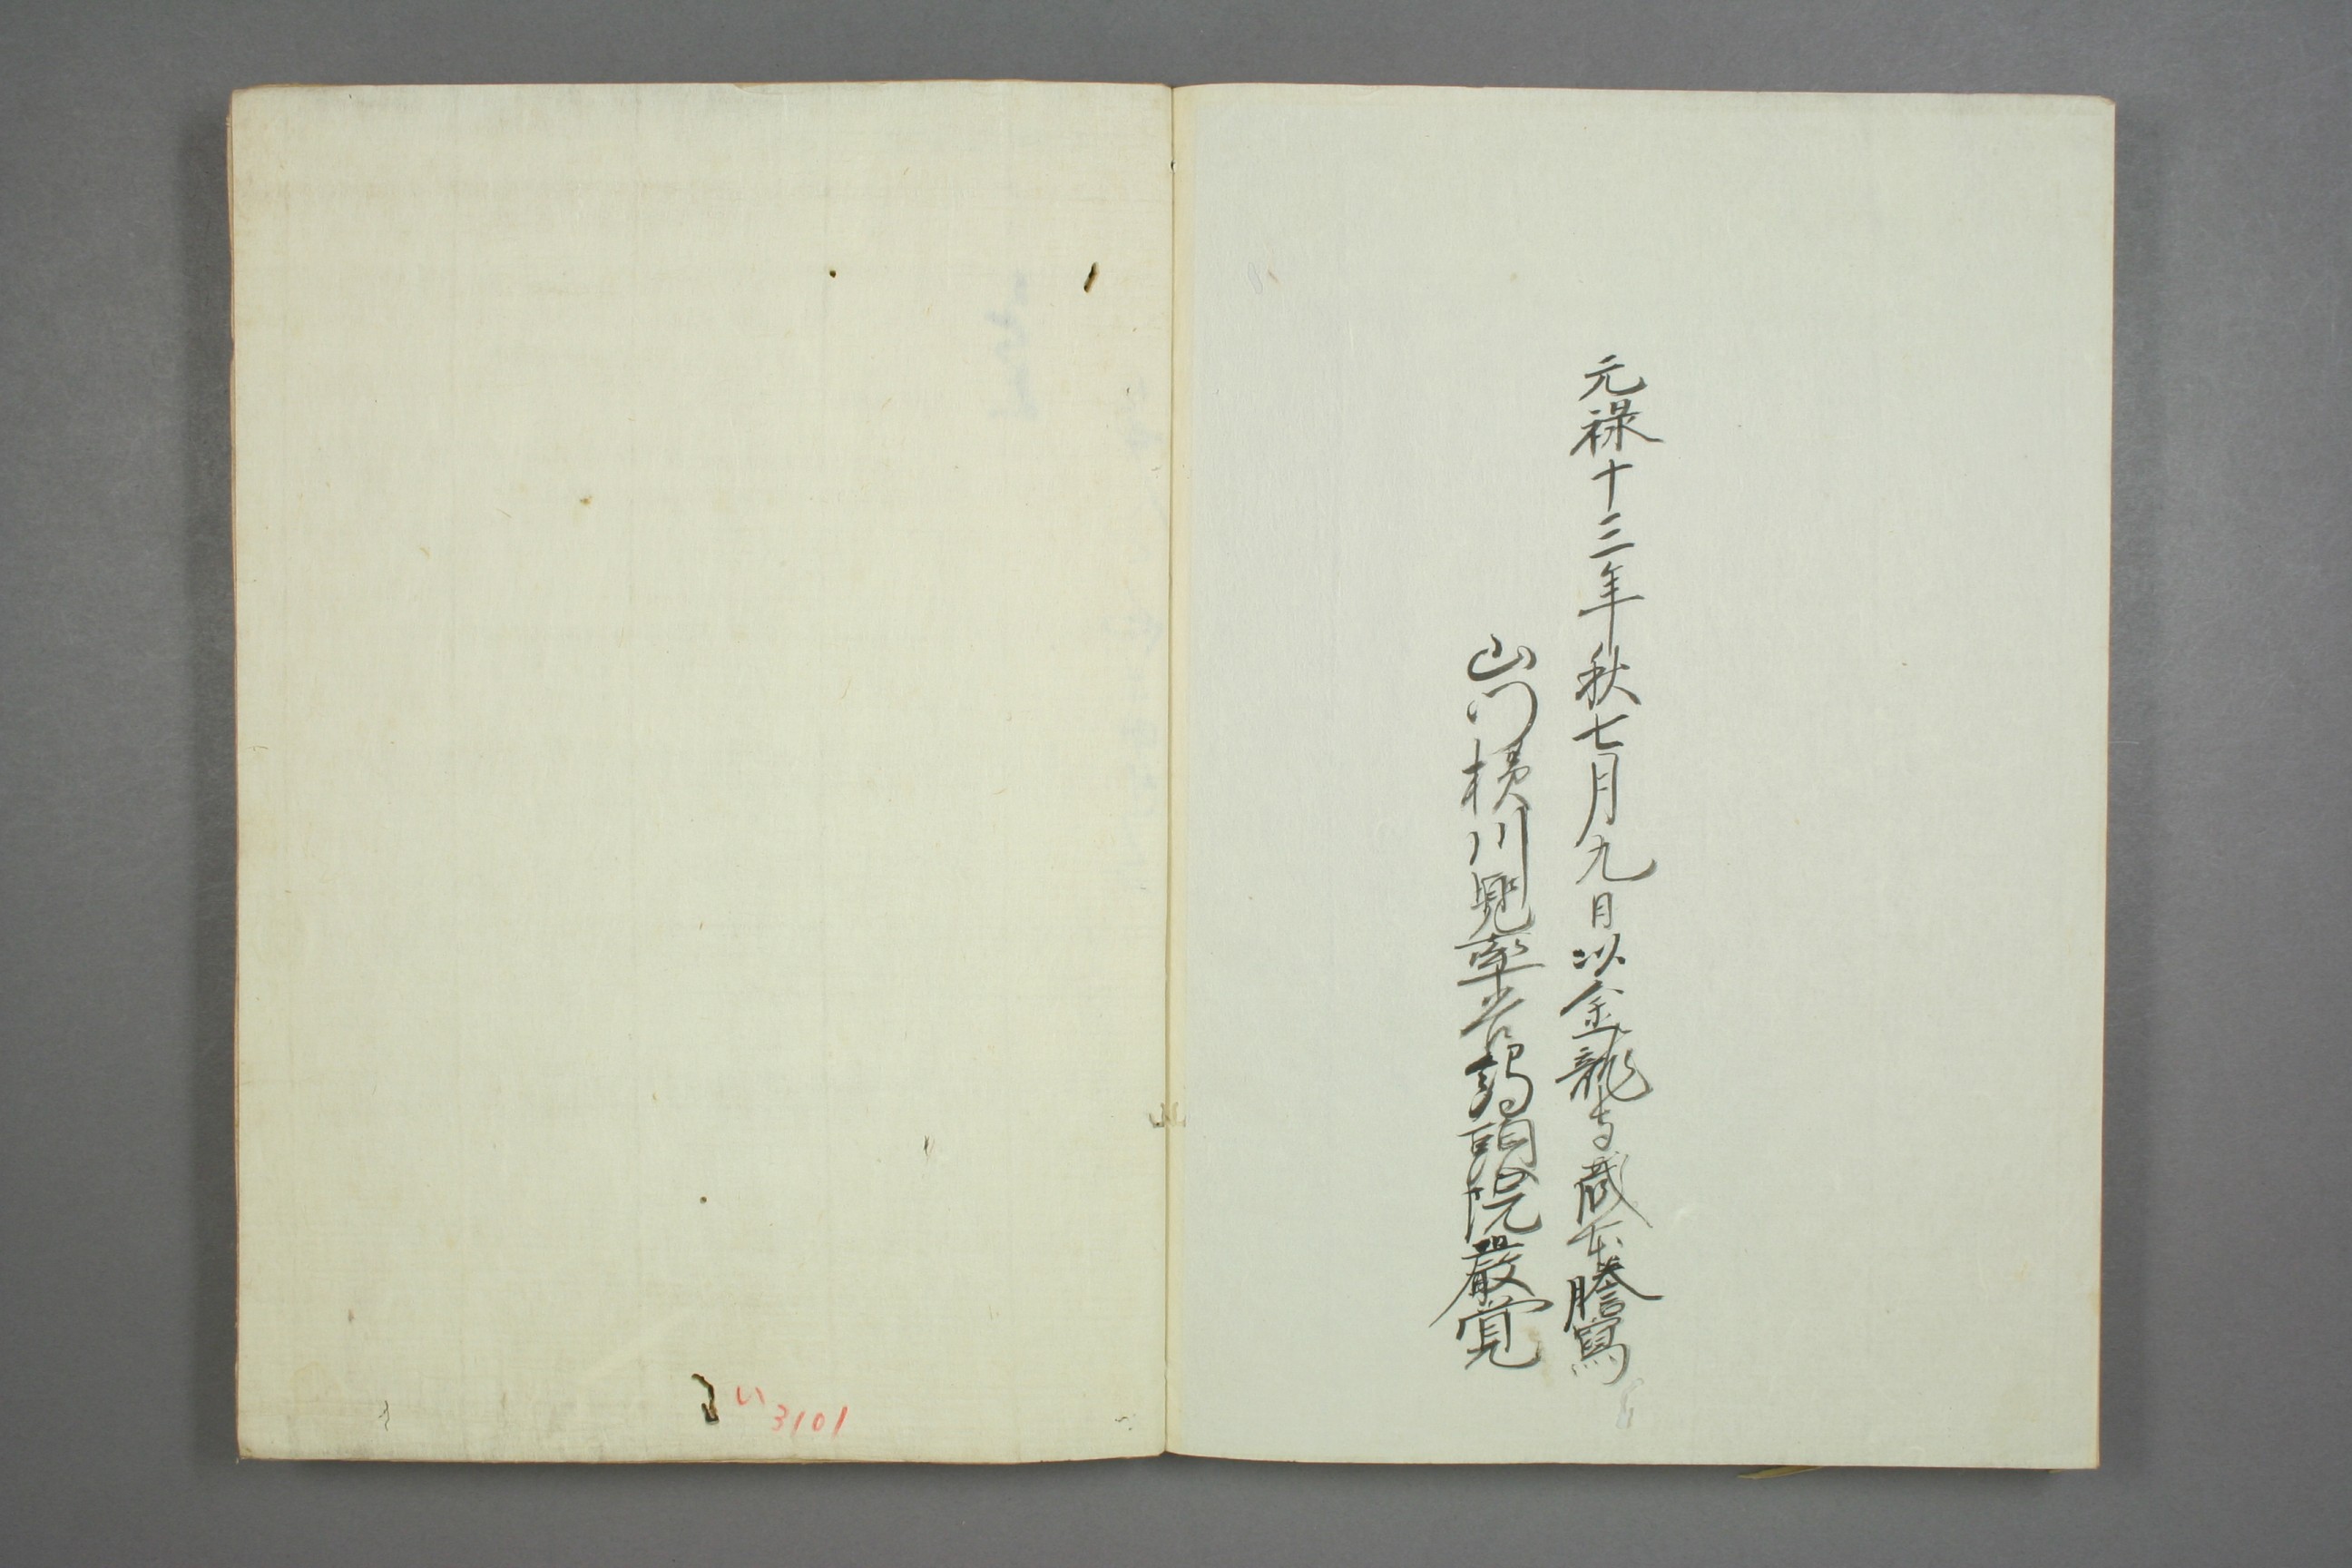 元禄十三年秋七月九日以金龍寺蔵本謄寫
山門横川兜率谷鶏頭院嚴覚
い
3101